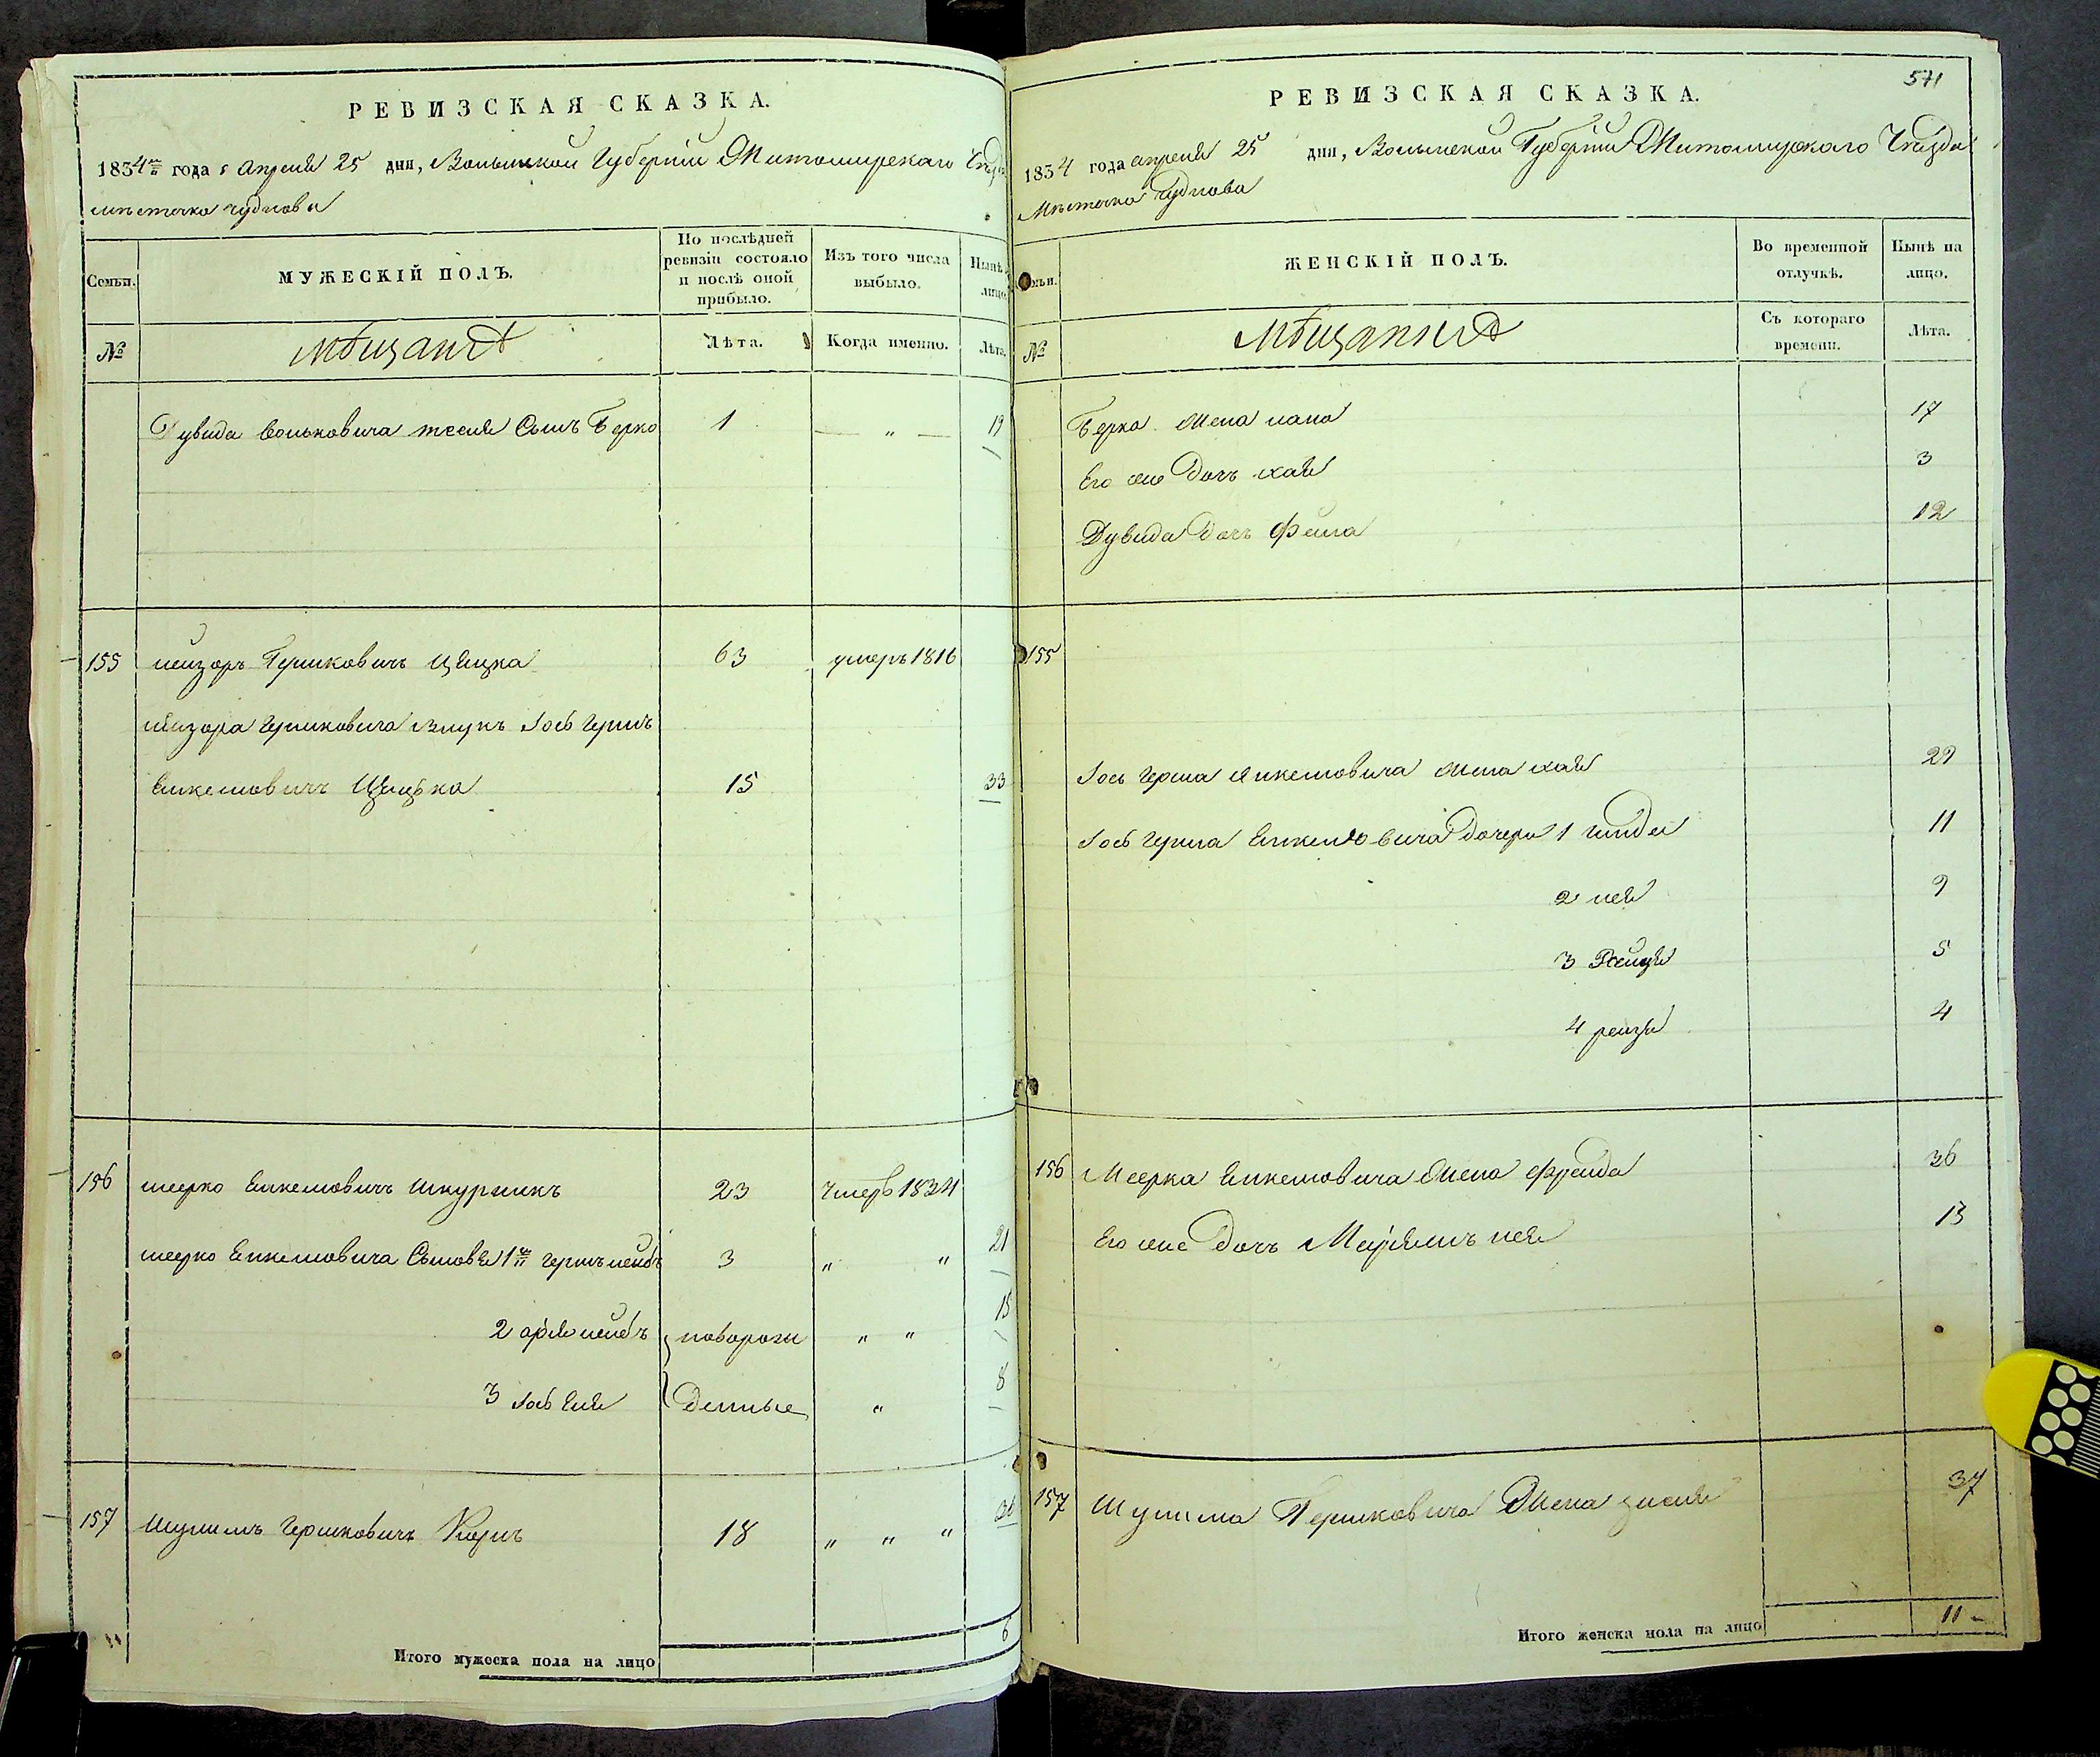 РЕВИЗСКАЯ СКАЗКА.
1834 года апреля 25 дня, Волынской Губерніи Житомирскаго
местечка чуднова
Семьи.
МУЖЕСКІЙ ПОЛЪ.
По послѣдней ревизіи состояло и послѣ оной прибыло.
Изъ того числа выбыло.
Нынѣ лицо
№
мѣщанъ
Лѣта.
Когда именно.
Лѣта.
Дувида Вольковича сынъ Берко 1 — " — 19
155 Гершковичъ 63 умеръ 1816
Гершковича внукъ Іосъ Гершъ
15 33
156 меерко Шкурникъ 23 Умеръ 1834
меерко Сыновья 1й гершъ лейбъ 3 " " 21
2 арія лейбъ новорож " " 15
3 Іось денные " 8
157 Шулимъ Гершковичъ 18 " " "
Итого мужеска пола на лицо 6
571
РЕВИЗСКАЯ СКАЗКА.
1834 года апреля 25 дня, Волынской Губерніи Житомирскаго Уѣзда
Мѣстечка Чуднова
ЖЕНСКІЙ ПОЛЪ.
Во временной отлучкѣ.
Нынѣ на лицо.
№
мѣщанъ
Съ котораго времени.
Лѣта.
Берка жена 17
Его же дочь хая 3
Дувида дочь 12
155
Іось Герша жена хая 29
Іось Герша дочери 1 11
2 лея 9
3 5
4 рейзя 4
156 Меерка жена фрейда 36
Его же дочь Маріямъ лея 13
157 Шулима Гершковича жена 37
Итого женска пола на лицо 11